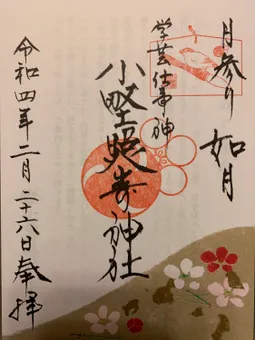 月参り 如月
学芸仕事の神
小野照崎神社
令和四年二月二十六日奉拝